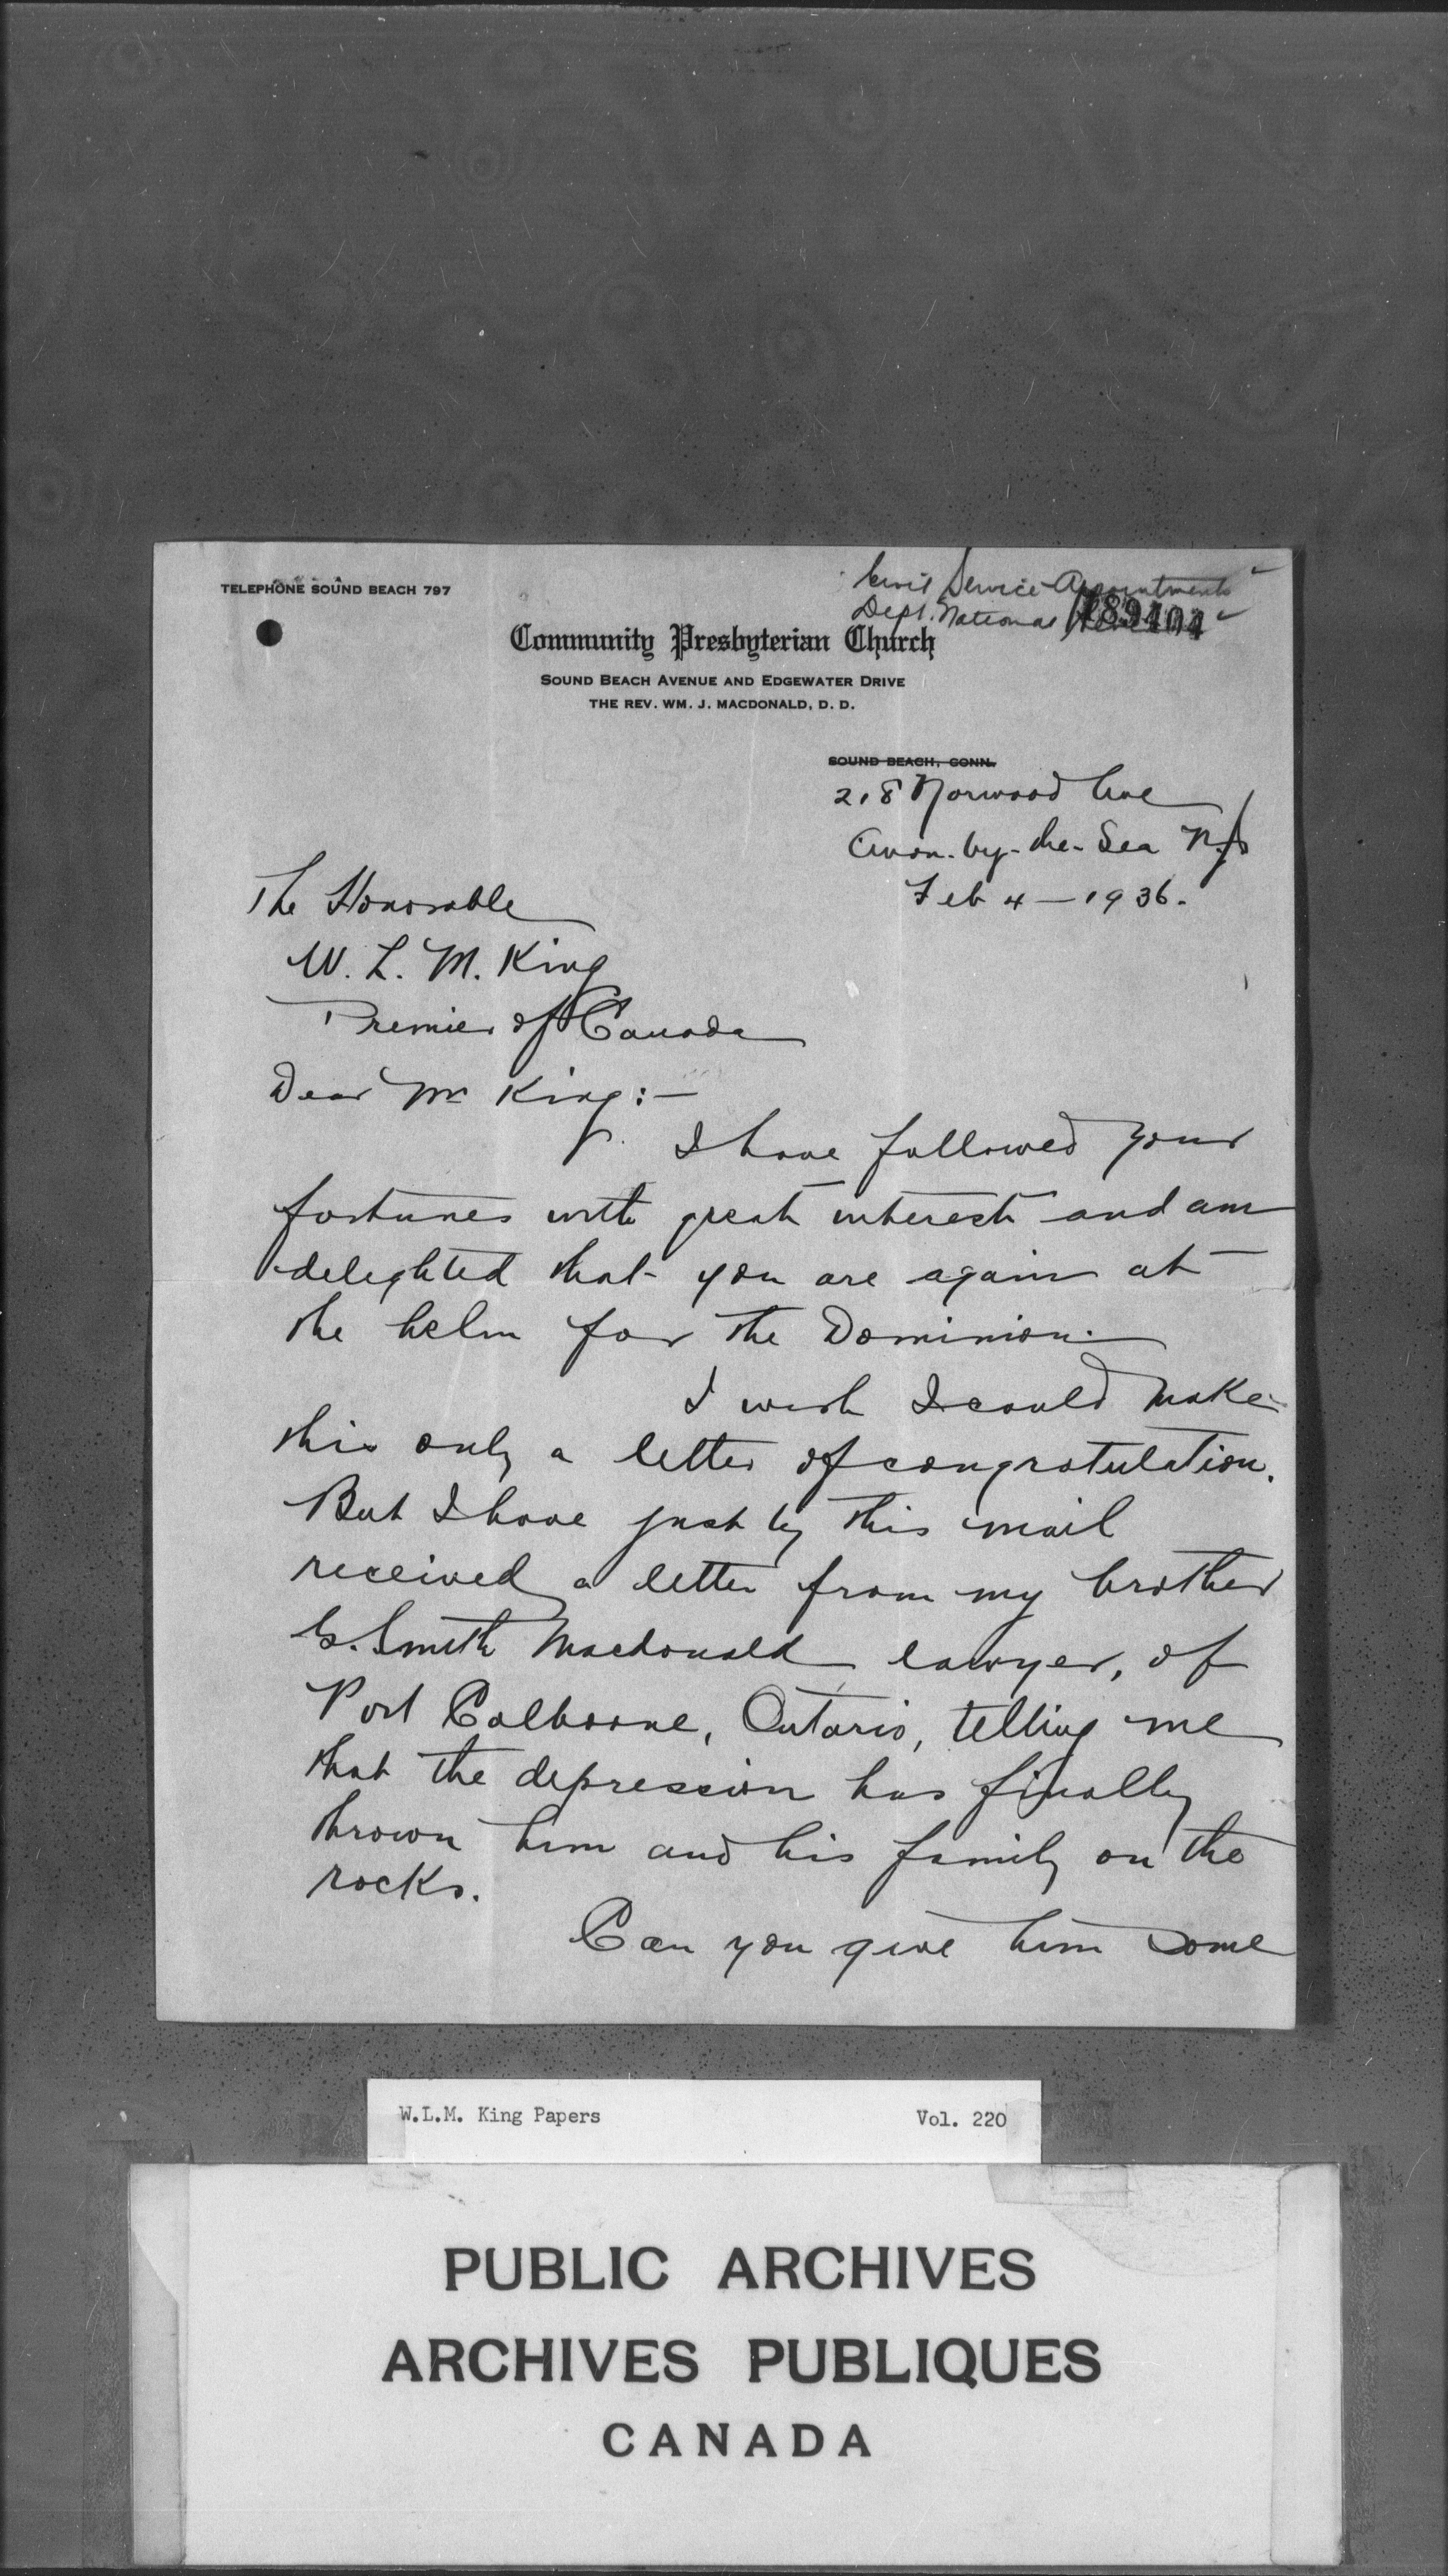 TELEPHONE SOUND BEACH 797
Civil Service-Appointments
Dept. National
189404
Community Presbyterian Church
SOUND BEACH AVENUE AND EDGEWATER DRIVE
THE REV. WM. J. MACDONALD, D. D.
SOUND BEACH, CONN.
218 Norwood Ave
Avon-by-the-Sea N.J.
Feb 4 - 1936.
The Honorable
W. L. M. King
Premier of Canada
Dear Mr King:-
I have followed your
fortunes with great interest and am
delighted that you are again at
the helm for the Dominion.
I wish I could make
this only a letter of congratulation.
But I have just by this mail
received a letter from my brother
G. Smith Macdonald lawyer, of
Port Colborne, Ontario, telling me
that the depression has finally
thrown him and his family on the
rocks.
Can you give him some
W.L.M. King Papers Vol. 220
PUBLIC ARCHIVES
ARCHIVES PUBLIQUES
CANADA